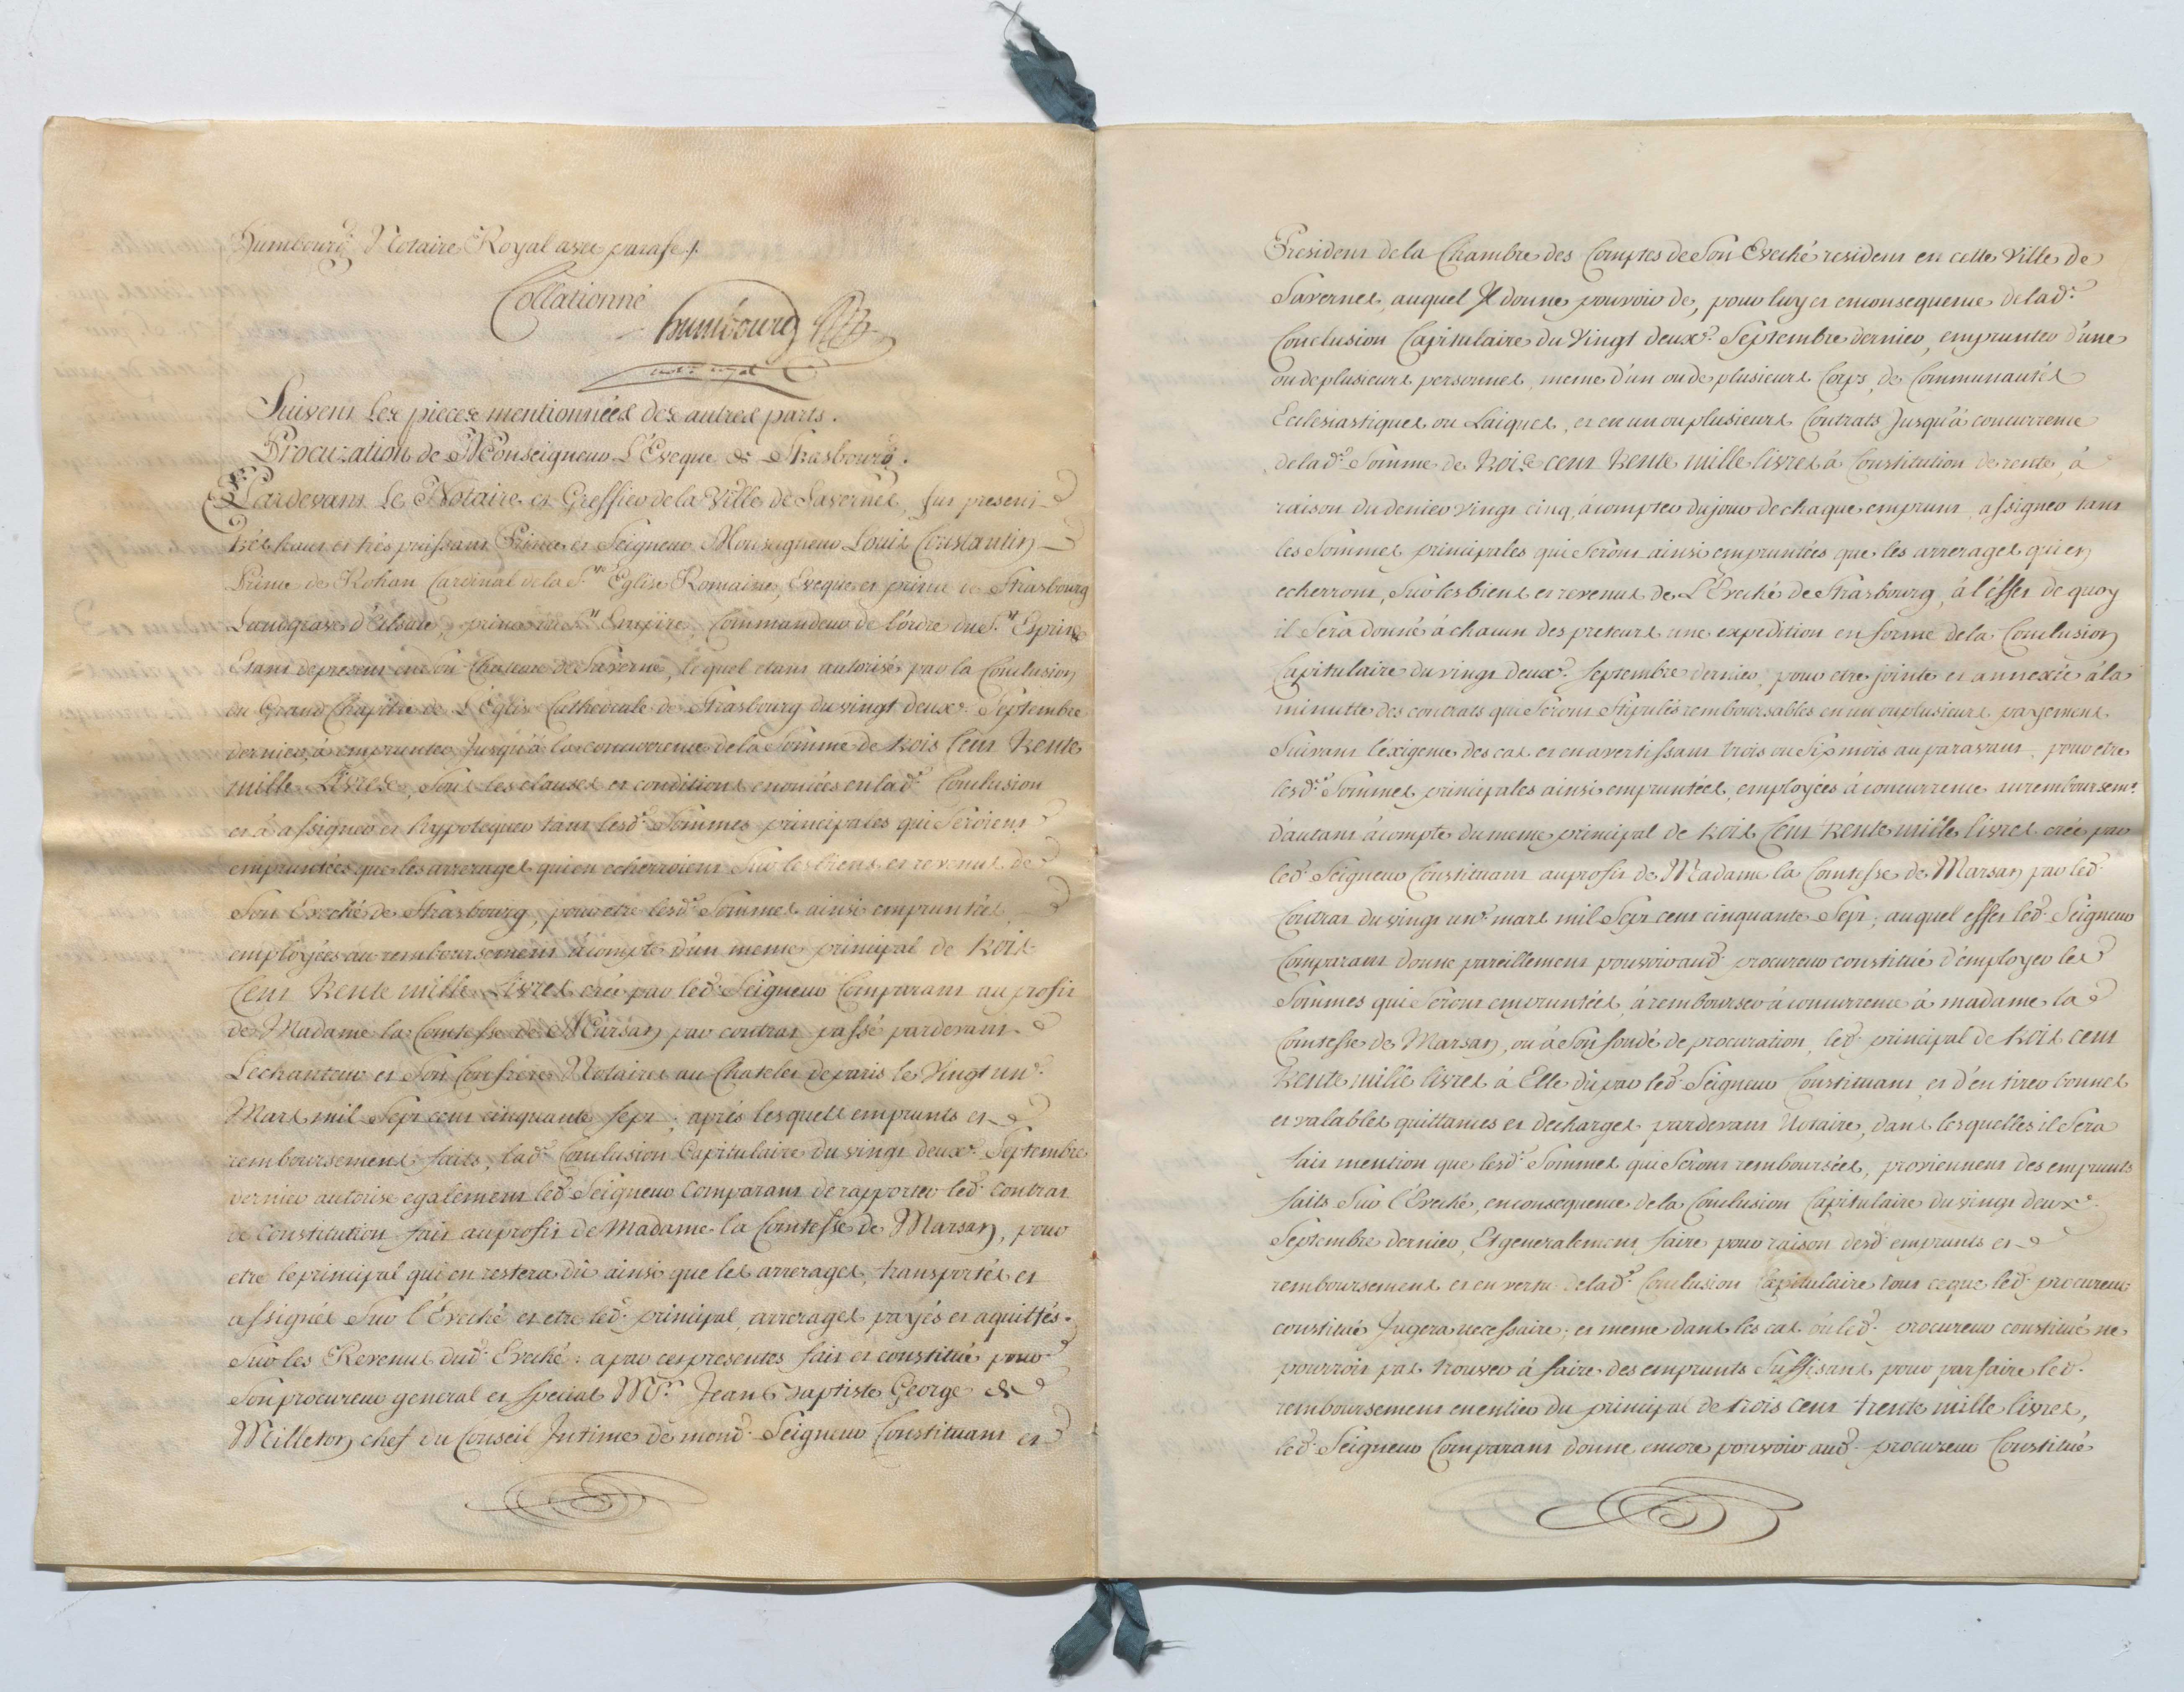 Humbourg Notaire Royal avec parafe ./.
Collationné
humbourg
notre royal
Suivent les pieces mentionnées des autres parts.
Procuration de Monseigneur L'Eveque de Strasbourg.
Pardevant Le Notaire et Greffier de la Ville de Savernes, fut present
très haut et très puissant Prince et Seigneur Monseigneur Louis Constantin
Prince de Rohan Cardinal de la Ste Eglise Romaine, Eveque et prince de Strasbourg
Landgrave d'Alsace, prince du St Empire, Commandeur de l'ordre du St Esprit
Etant de present en son Chateau de Saverne, lequel etant autorisé par la Conclusion
du Grand Chapitre de L'Eglise Cathedrale de Strasbourg du vingt deuxe. Septembre
dernier, à emprunter jusqu'à la concurrence de la Somme de trois Cent trente
mille Livres, Sous les clauses et conditions enoncées en lade. Conclusion
et à assigner et hypotequer tant lesde. Sommes principales qui Seroient
empruntées que les arrerages qui en echerroient Sur les biens et revenus de
Son Eveché de Strasbourg, pour etre lesde. Sommes ainsi empruntées
employées au remboursement à compte d'un meme principal de trois
Cent trente mille Livres créé par led. Seigneur Comparant au profit
de Madame la Comtesse de Marsan par contrat passé pardevant
Lechanteur et Son Confrere Notaires au Chatelet de paris le Vingt une.
Mars mil Sept cent cinquante sept ; après lesquels emprunts et
remboursements faits, lade. Conclusion Capitulaire du vingt deuxe. Septembre
dernier autorise egalement led. Seigneur Comparant de rapporter led. contrat
de Constitution fait au profit de Madame la Comtesse de Marsan, pour
etre le principal qui en restera dû ainsi que les arrerages, transportés et
assignés Sur l'Eveché et etre led. principal, arrerages payés et aquittés
Sur les Revenus dud. Eveché : a par ces presentes fait et constitué pour
Son procureur general et special Mr. Jean Baptiste George de
Milleton chef du Conseil Intime de mond. Seigneur Constituant et
President de la Chambre des Comptes de Son Eveché resident en cette Ville de
Savernes, auquel Il donne pouvoir de, pour luy et en consequence de lade.
Conclusion Capitulaire du Vingt deuxe. Septembre dernier, emprunter d'une
ou de plusieurs personnes, meme d'un ou de plusieurs Corps, de Communautés
Eclesiastiques ou Laiques, et en un ou plusieurs Contrats Jusqu'à concurrence
de lade. Somme de trois cent trente mille livres à Constitution de rente, à
raison du denier vingt cinq, à compter du jour de chaque emprunt, assigner tant
les Sommes principales qui Seront ainsi empruntées que les arrerages qui en
echerront, Sur les biens et revenus de L'Eveché de Strasbourg, à l'effet de quoy
il Sera donné à chacun des preteurs une expedition en forme de la Conclusion
Capitulaire du vingt deuxe. Septembre dernier, pour etre jointe et annexée à la
minutte des contrats qui Seront Stipulés remboursables en un ou plusieurs payements
Suivant l'exigence des cas et en avertissant trois ou Six mois au paravant, pour etre
lesde. Sommes principales ainsi empruntées, employées à concurrence au remboursemt.
d'autant à compte du meme principal de trois Cent trente mille livres créé par
led. Seigneur Constituant au profit de Madame la Comtesse de Marsan par led.
Contrat du vingt une. mars mil Sept cent cinquante Sept ; auquel effet led. Seigneur
Comparant donne pareillement pouvoir aud. procureur constitué d'employer les
Sommes qui Seront empruntées, à rembourser à concurrence à madame la
Comtesse de Marsan, ou à Son fondé de procuration, led. principal de trois cent
trente mille livres à Elle dû par led. Seigneur Constituant, et d'en tirer bonnes
et valables quittances et decharges pardevant Notaire, dans lesquelles il Sera
fait mention que lesde. Sommes qui Seront remboursées, proviennent des emprunts
faits Sur l'Eveché, en consequence de la Conclusion Capitulaire du vingt deuxe.
Septembre dernier, Et generalement faire pour raison desd. emprunts et
remboursements et en vertu de lade. Conclusion Capitulaire tout ce que led. procureur
constitué Jugera necessaire ; et meme dans les cas où led. procureur constitué ne
pourroit pas trouver à faire des emprunts Suffisants pour parfaire led.
remboursement en entier du principal de trois cent trente mille livres,
led. Seigneur Comparant donne encore pouvoir aud. procureur Constitué